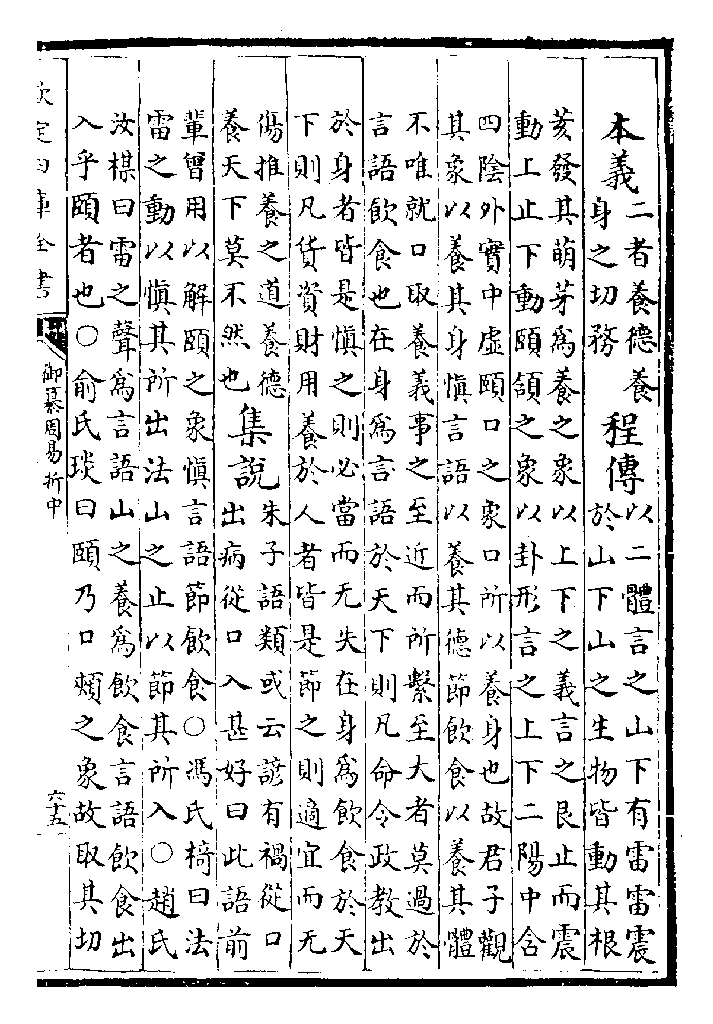 本義
二者養德養
身之切務
程傳
以二體言之山下有雷雷震
於山下山之生物皆動其根
荄發其萌芽爲養之象以上下之義言之艮止而震
動上止下動頤頷之象以卦形言之上下二陽中含
四陰外實中虛頤口之象口所以養身也故君子觀
其象以養其身慎言語以養其德節飲食以養其體
不唯就口取養義事之至近而所繫至大者莫過於
言語飲食也在身爲言語於天下則凡命令政教出
於身者皆是慎之則必當而无失在身爲飲食於天
下則凡貨資財用養於人者皆是節之則適宜而无
傷推養之道養德
養天下莫不然也
集說
朱子語類或云諺有禍從口
出病從口入甚好曰此語前
輩曾用以解頤之象慎言語節飲食○馮氏椅曰法
雷之動以慎其所出法山之止以節其所入○趙氏
汝楳曰雷之聲爲言語山之養爲飲食言語飲食出
入乎頤者也○俞氏琰曰頤乃口頰之象故取其切
欽定四庫全書
御纂周易折中
六十五